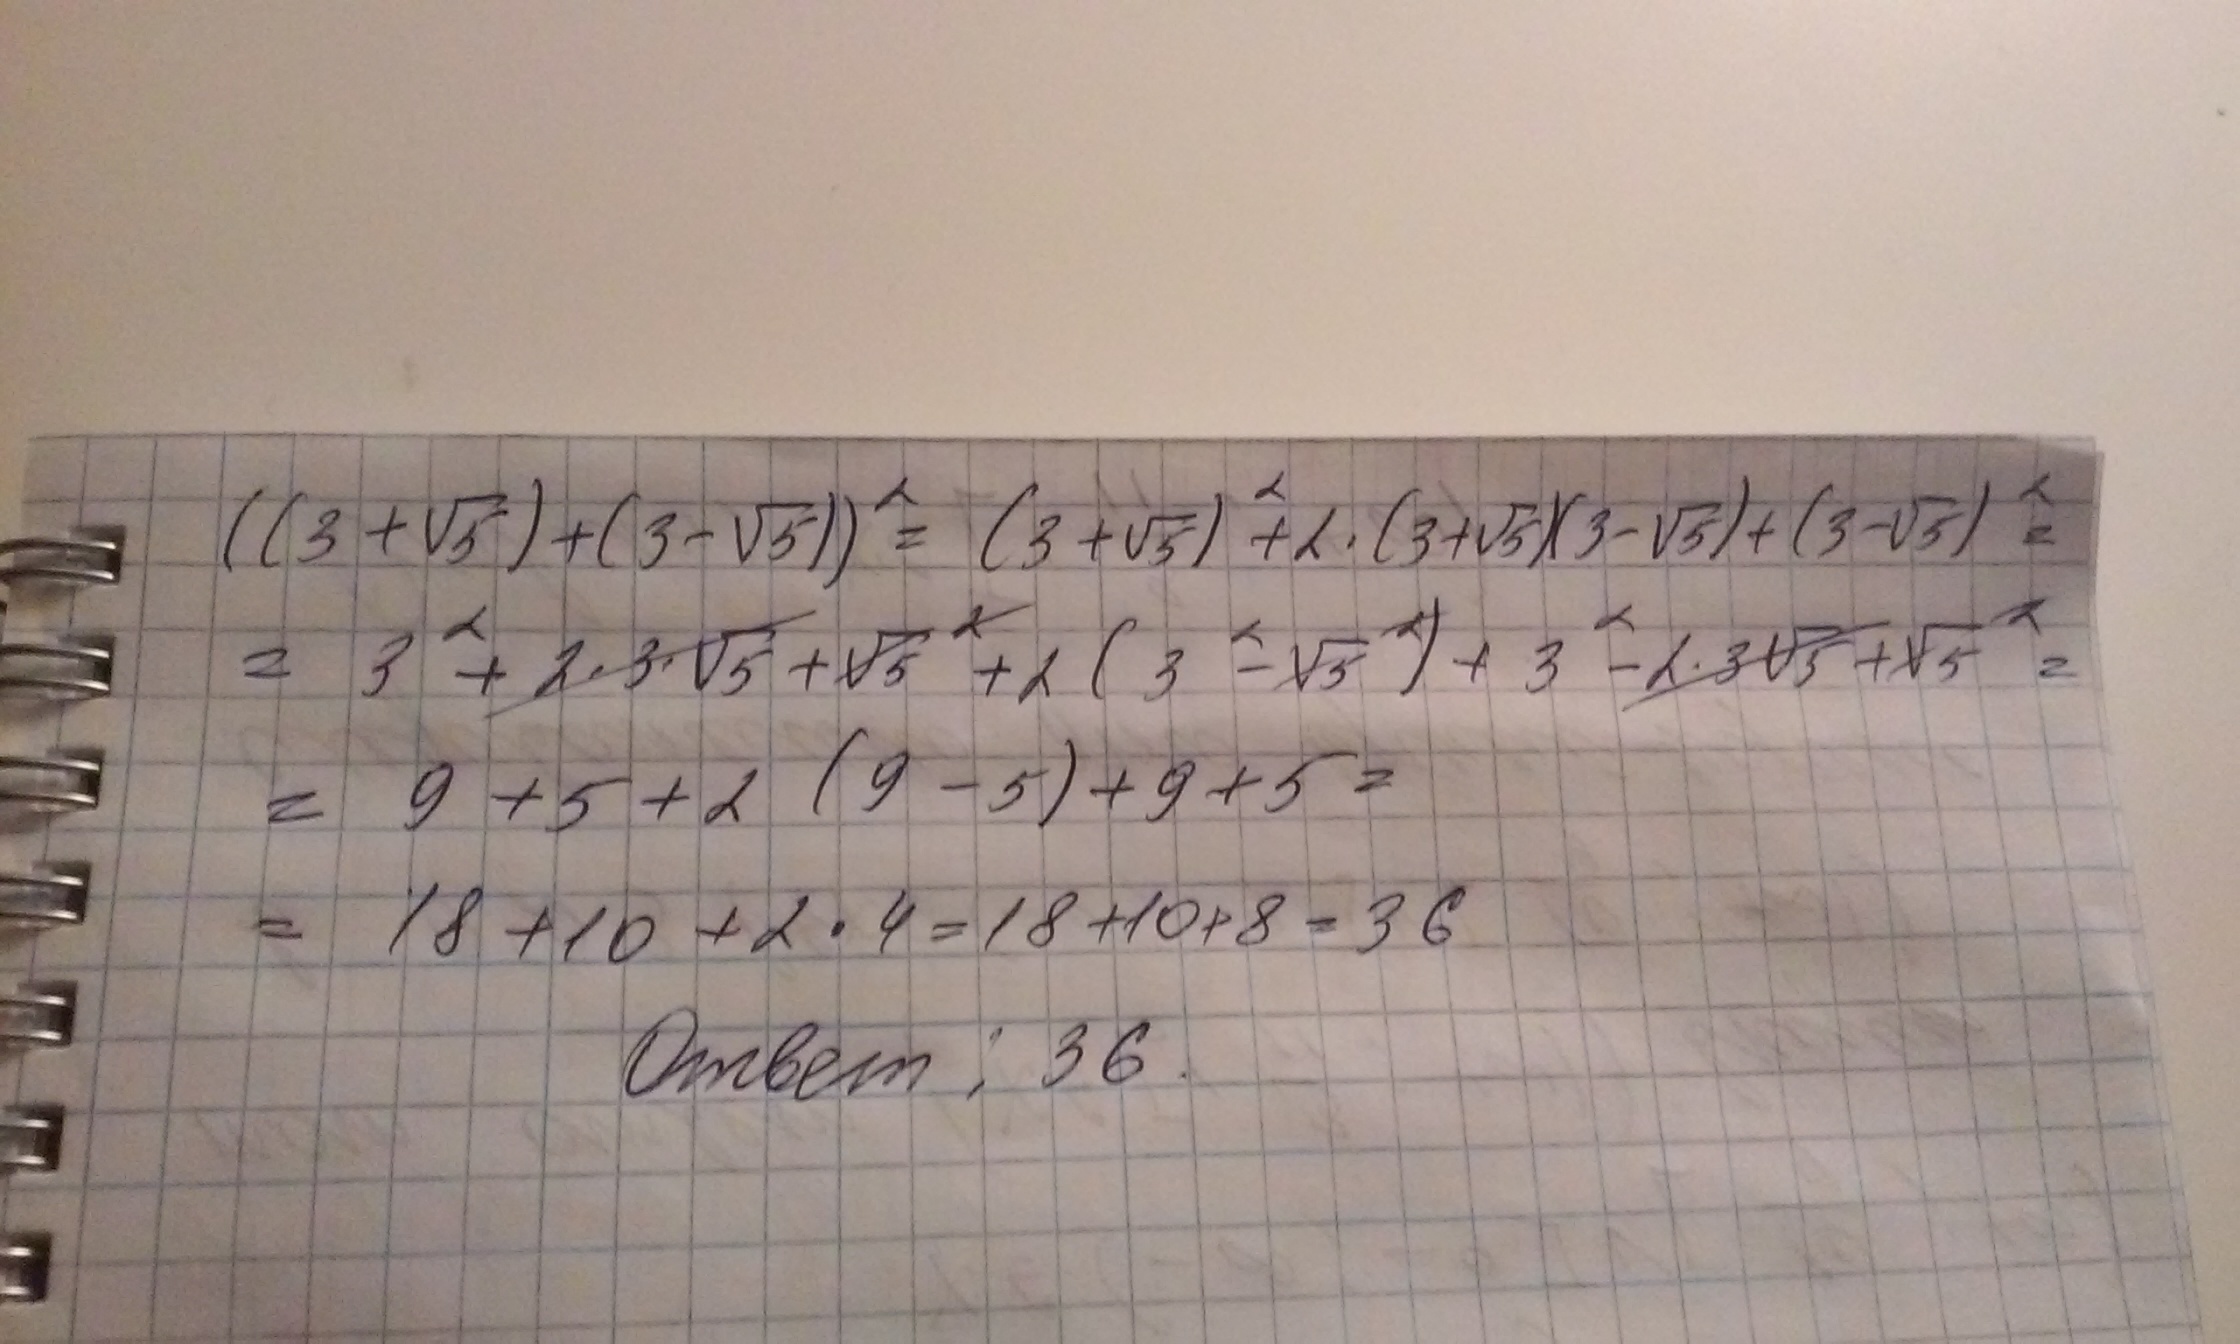 ((3+√5)+(3-√5))² = (3+√5)²+2·(3+√5)(3-√5)+(3-√5)² =
= 3²+2·3·√5+√5²+2(3²-√5²)+3²-2·3√5+√5² =
= 9+5+2(9-5)+9+5=
= 18+10+2·4=18+10+8=36
Ответ: 36.